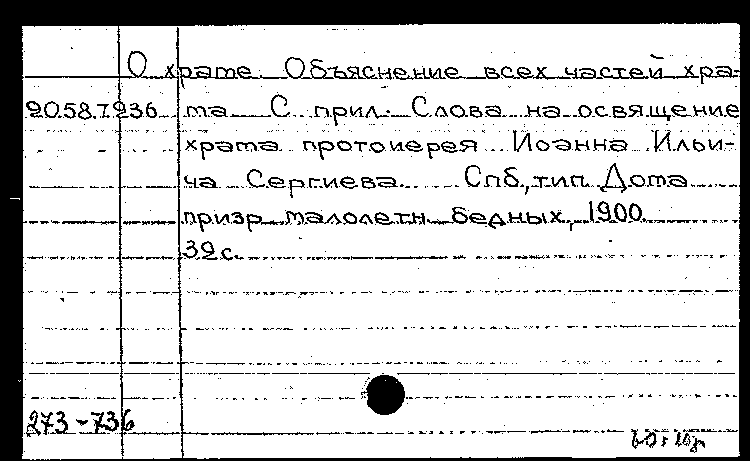 О храме. Объяснение всех частей хра-
20.58.7.236 ма. С прил. Слова на освящение
храма протоиерея Иоанна Ильи-
ча Сергиева. Спб., тип. Дома
призр. малолетн. бедных, 1900.
32 с.
273-736